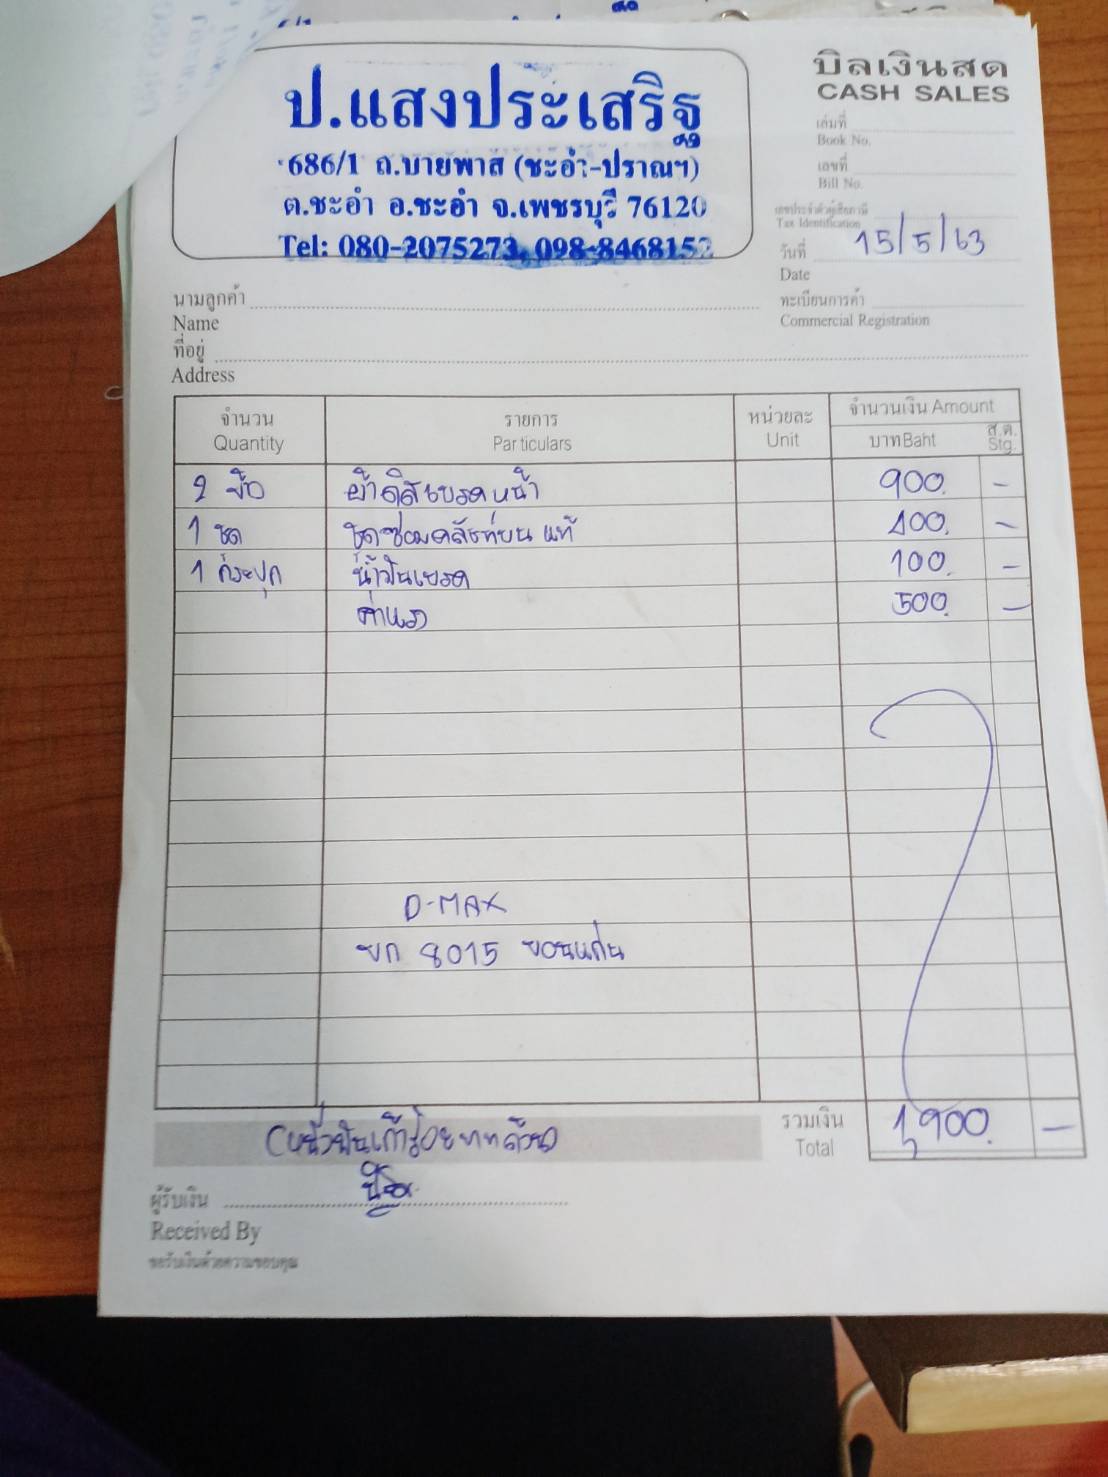 บิลเงินสด
CASH SALES
ป.แสงประเสริฐ
686/1 ถ.บายพาส (ชะอำ-ปราณฯ)
ต.ชะอำ อ.ชะอำ จ.เพชรบุรี 76120
Tel: 080-2075273, 098-8468152
เล่มที่
Book No.
เลขที่
Bill No.
เลขประจำตัวผู้เสียภาษี
Tax Identification
วันที่ 15/5/63
Date
ทะเบียนการค้า
Commercial Registration
นามลูกค้า
Name
ที่อยู่
Address
จำนวน รายการ หน่วยละ จำนวนเงิน Amount
Quantity Particulars Unit บาท Baht ส.ต. Stg.
ผ้าดิสเบรคหน้า 900. -
1 ชุด ชุดซ่อมคลัชท์บน แท้ 400. -
1 กระปุก น้ำมันเบรค 100. -
ค่าแรง 500. -
D-MAX
บก 8015 ขอนแก่น
(หนึ่งพันเก้าร้อยบาทถ้วน
รวมเงิน 1,900. -
Total
ผู้รับเงิน
Received By
ขอรับเงินด้วยความขอบคุณ